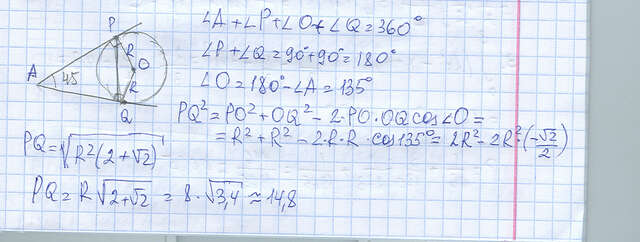 ∠A+∠P+∠O+∠Q=360°
∠P+∠Q=90°+90°=180°
∠O=180°-∠A=135°
PQ²=PO²+OQ²-2·PO·OQcos∠O=
=R²+R²-2·R·R·cos135°=2R²-2R²·(-√2/2)
PQ=√(R²(2+√2))
PQ=R√(2+√2)=8·√3,4≈14,8
P
R
A
45
O
R
Q